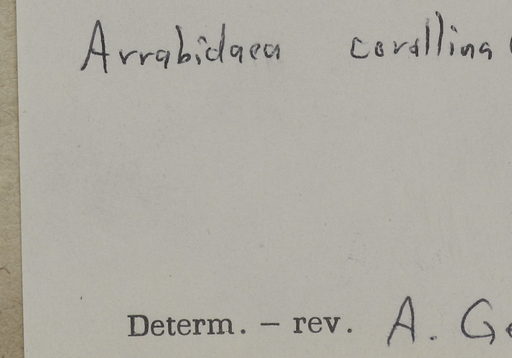 Arrabidaea corallina
Determ. – rev. A.